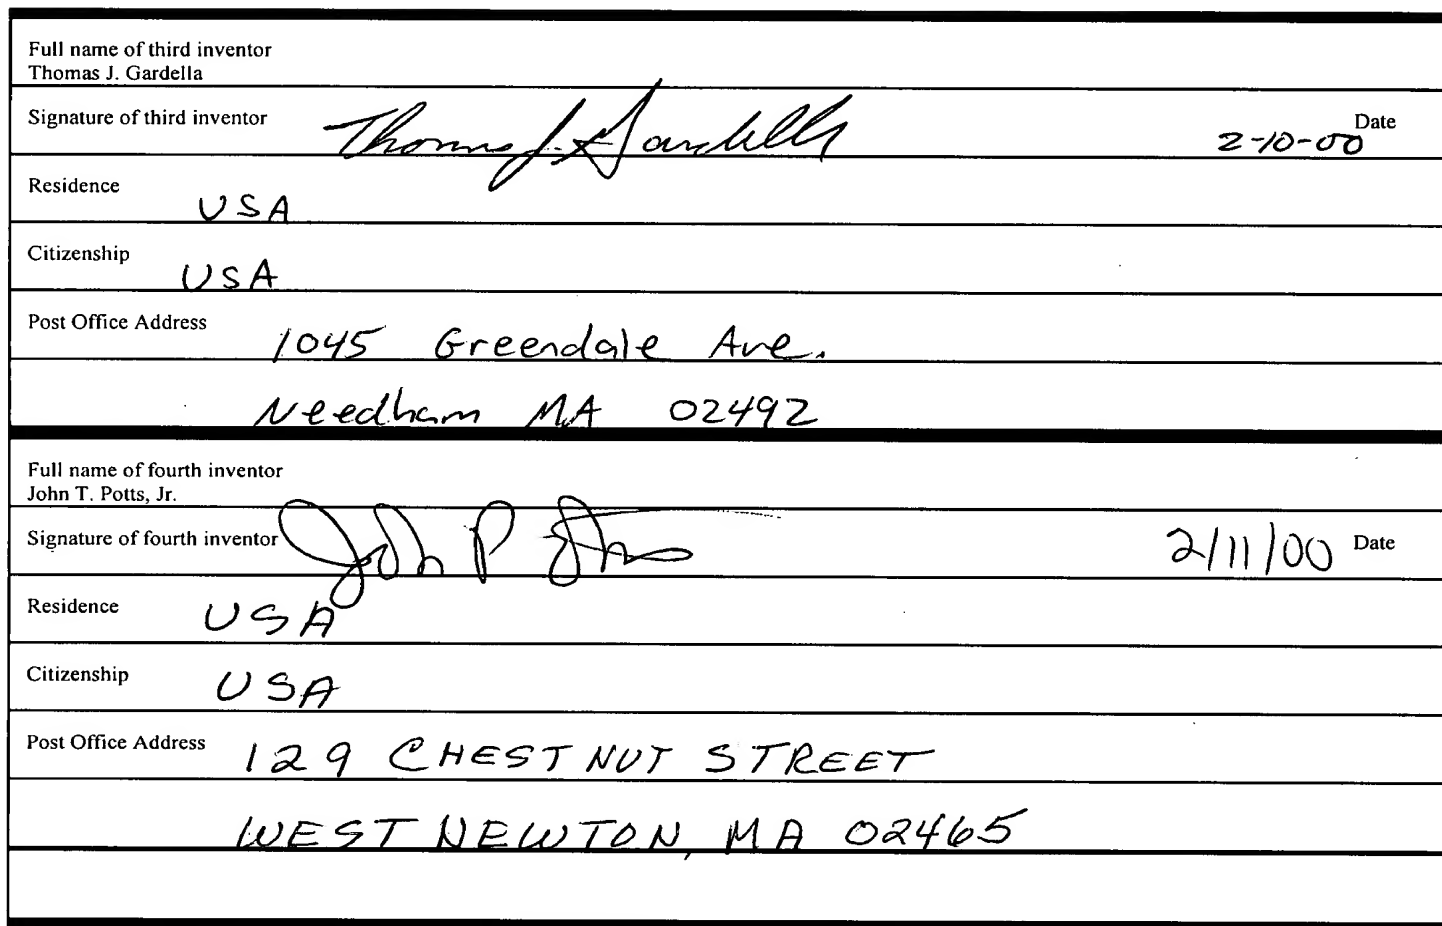 Full name of third inventor
Thomas J. Gardella
Signature of third inventor Thomas J. Gardella 2-10-00 Date
Residence USA
Citizenship USA
Post Office Address 1045 Greendale Ave.
Needham MA 02492
Full name of fourth inventor
John T. Potts, Jr.
Signature of fourth inventor John 2/11/00 Date
Residence USA
Citizenship USA
Post Office Address 129 CHESTNUT STREET
WEST NEWTON, MA 02465